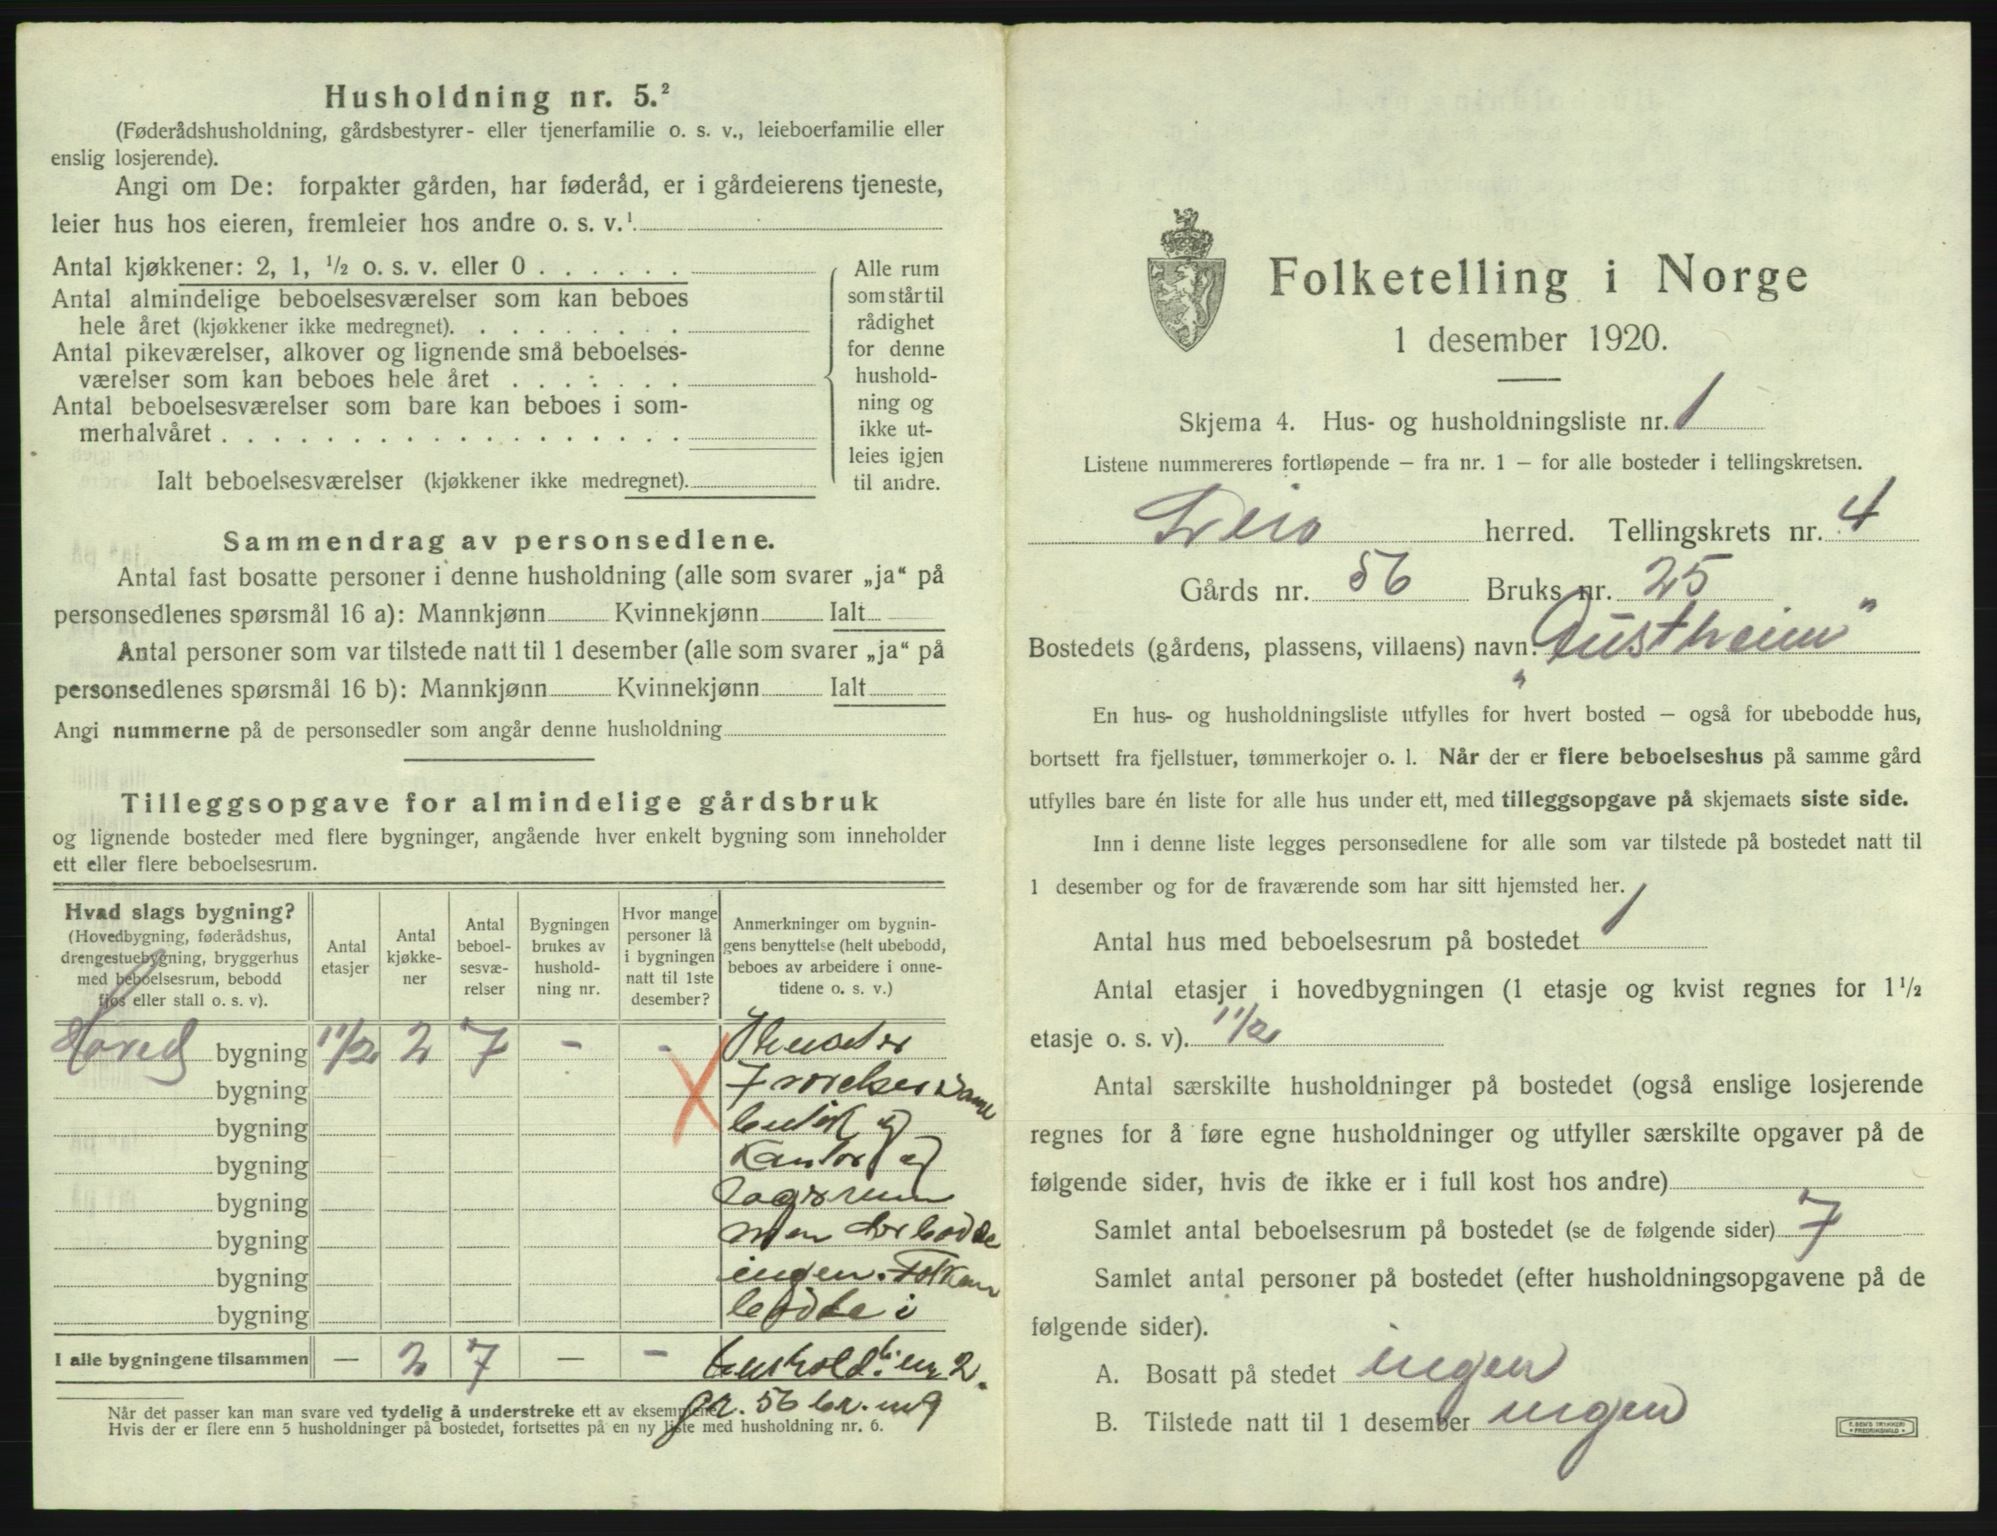 Husholdning nr. 5.²
(Føderådshusholdning, gårdsbestyrer- eller tjenerfamilie o. s. v., leieboerfamilie eller
enslig losjerende).
Angi om De: forpakter gården, har føderåd, er i gårdeierens tjeneste,
leier hus hos eieren, fremleier hos andre o. s. v.¹
Antal kjøkkener: 2, 1, ½ o. s. v. eller 0 . . . . . .
Antal almindelige beboelsesværelser som kan beboes
hele året (kjøkkener ikke medregnet). . . . . . . . .
Antal pikeværelser, alkover og lignende små beboelses-
værelser som kan beboes hele året . . . . . . .
Antal beboelsesværelser som bare kan beboes i som-
merhalvåret . . . . . . . . . . . . . . . . .
Ialt beboelsesværelser (kjøkkener ikke medregnet).
Alle rum
som står til
rådighet
for denne
hushold-
ning og
ikke ut-
leies igjen
til andre.
Sammendrag av personsedlene.
Antal fast bosatte personer i denne husholdning (alle som svarer „ja“ på
personsedlenes spørsmål 16 a): Mannkjønn Kvinnekjønn Ialt
Antal personer som var tilstede natt til 1 desember (alle som svarer „ja“ på
personsedlenes spørsmål 16 b): Mannkjønn Kvinnekjønn Ialt
Angi nummerne på de personsedler som angår denne husholdning
Tilleggsopgave for almindelige gårdsbruk
og lignende bosteder med flere bygninger, angående hver enkelt bygning som inneholder
ett eller flere beboelsesrum.
Hvad slags bygning?
(Hovedbygning, føderådshus,
drengestuebygning, bryggerhus
med beboelsesrum, bebodd
fjøs eller stall o. s. v).
Antal
etasjer
Antal
kjøkke-
ner
Antal
beboel-
sesvæ-
relser
Bygningen
brukes av
hushold-
ning nr.
Hvor mange
personer lå
i bygningen
natt til 1ste
desember?
Anmerkninger om bygnin-
gens benyttelse (helt ubebodd,
beboes av arbeidere i onne-
tidene o. s. v.)
Hoved bygning 1½ 2 7 - -
bygning 7 værelser
bygning
bygning Kantor og
bygning Lagerrum
bygning men der bodde
bygning ingen. Folkene
bygning bodde i
I alle bygningene tilsammen — 2 7 — - hushold.l. nr 2.
gr. 56 br. nr 9
Når det passer kan man svare ved tydelig å understreke ett av eksemplene
Hvis der er flere enn 5 husholdninger på bostedet, fortsettes på en ny liste med husholdning nr. 6.
Folketelling i Norge
1 desember 1920.
Skjema 4. Hus- og husholdningsliste nr. 1
Listene nummereres fortløpende — fra nr. 1 — for alle bosteder i tellingskretsen.
herred. Tellingskrets nr. 4
Gårds nr. 56 Bruks nr. 25
Bostedets (gårdens, plassens, villaens) navn: „Austheim"
En hus- og husholdningsliste utfylles for hvert bosted — også for ubebodde hus,
bortsett fra fjellstuer, tømmerkojer o. l. Når der er flere beboelseshus på samme gård
utfylles bare én liste for alle hus under ett, med tilleggsopgave på skjemaets siste side.
Inn i denne liste legges personsedlene for alle som var tilstede på bostedet natt til
1 desember og for de fraværende som har sitt hjemsted her.
Antal hus med beboelsesrum på bostedet 1
Antal etasjer i hovedbygningen (1 etasje og kvist regnes for 1½
etasje o. s. v). 1½
Antal særskilte husholdninger på bostedet (også enslige losjerende
regnes for å føre egne husholdninger og utfyller særskilte opgaver på de
følgende sider, hvis de ikke er i full kost hos andre)
Samlet antal beboelsesrum på bostedet (se de følgende sider) 7
Samlet antal personer på bostedet (efter husholdningsopgavene på de
følgende sider).
A. Bosatt på stedet ingen
B. Tilstede natt til 1 desember ingen